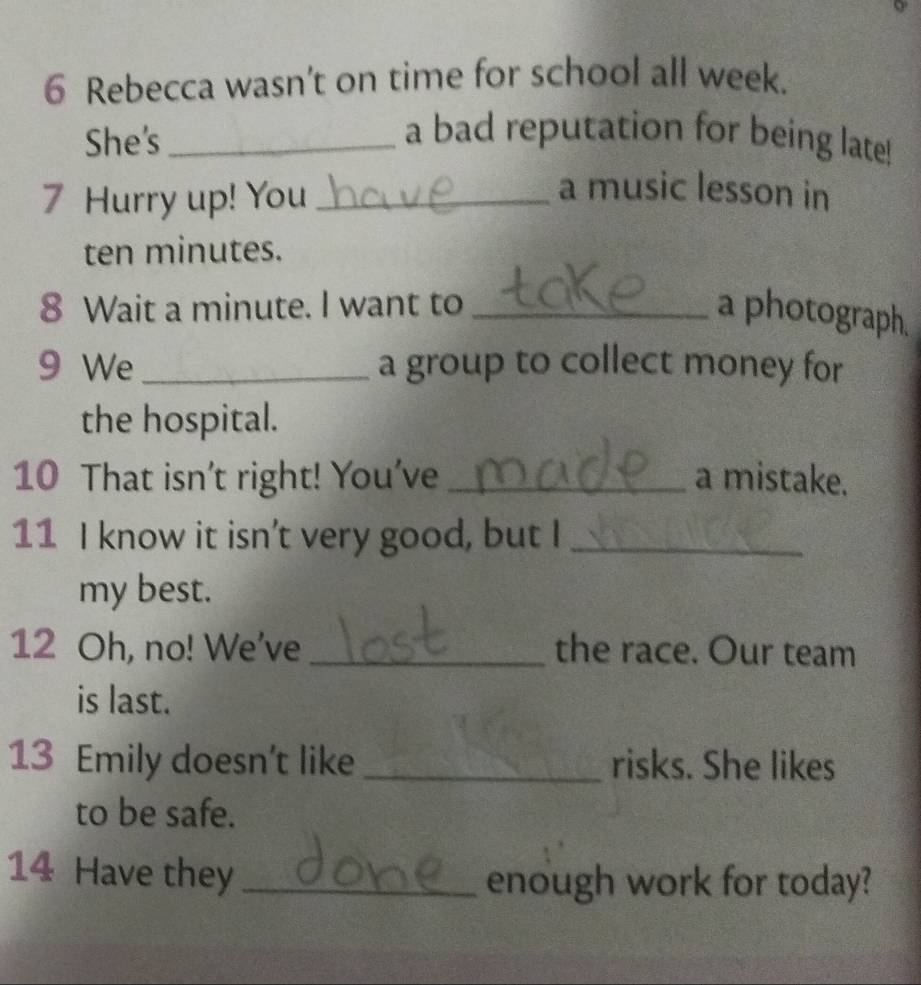 6 Rebecca wasn't on time for school all week.
She's ____________ a bad reputation for being late!
7 Hurry up! You have a music lesson in
ten minutes.
8 Wait a minute. I want to take a photograph.
9 We ____________ a group to collect money for
the hospital.
10 That isn't right! You've made a mistake.
11 I know it isn't very good, but I ____________
my best.
12 Oh, no! We've lost the race. Our team
is last.
13 Emily doesn't like ____________ risks. She likes
to be safe.
14 Have they done enough work for today?